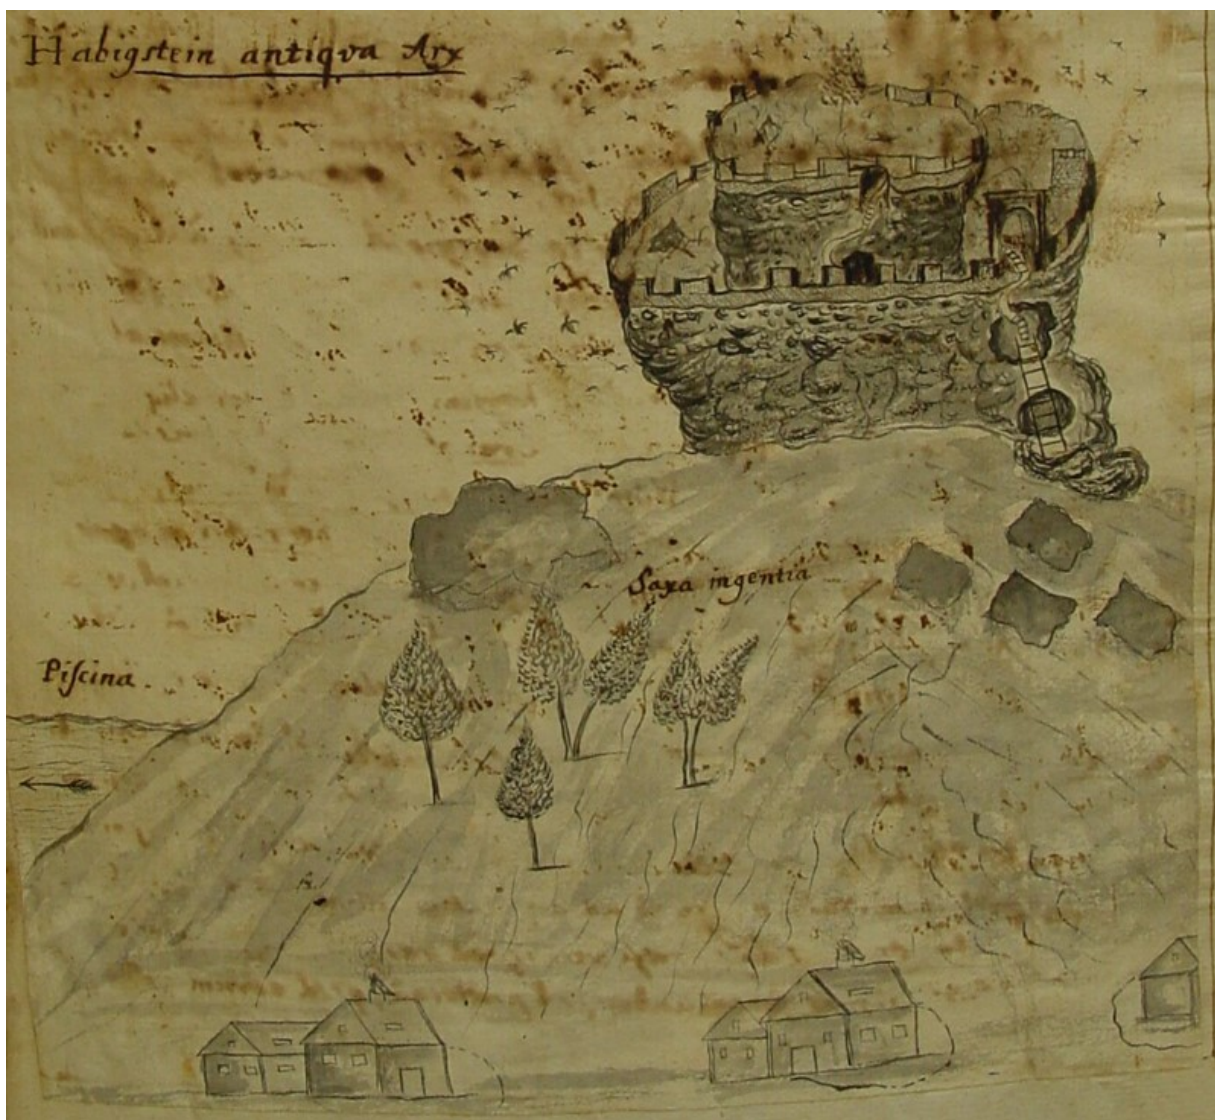 Habigstein antiqva Arx
Saxa ingentia
Piſcina.